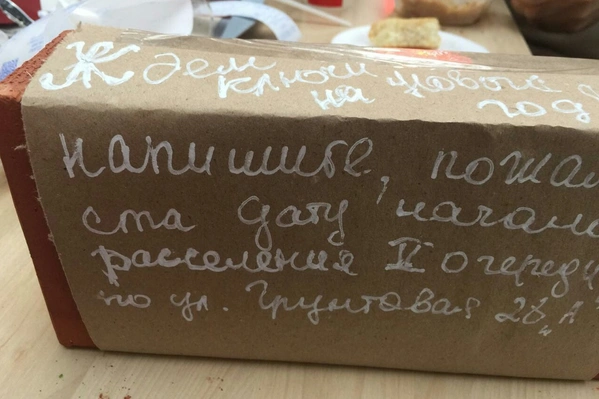 Ждем
ключи
на Новый
год
Напишите, пожал
ста дату начала
расселения II очереди
по ул. Грунтовая 28 „А"